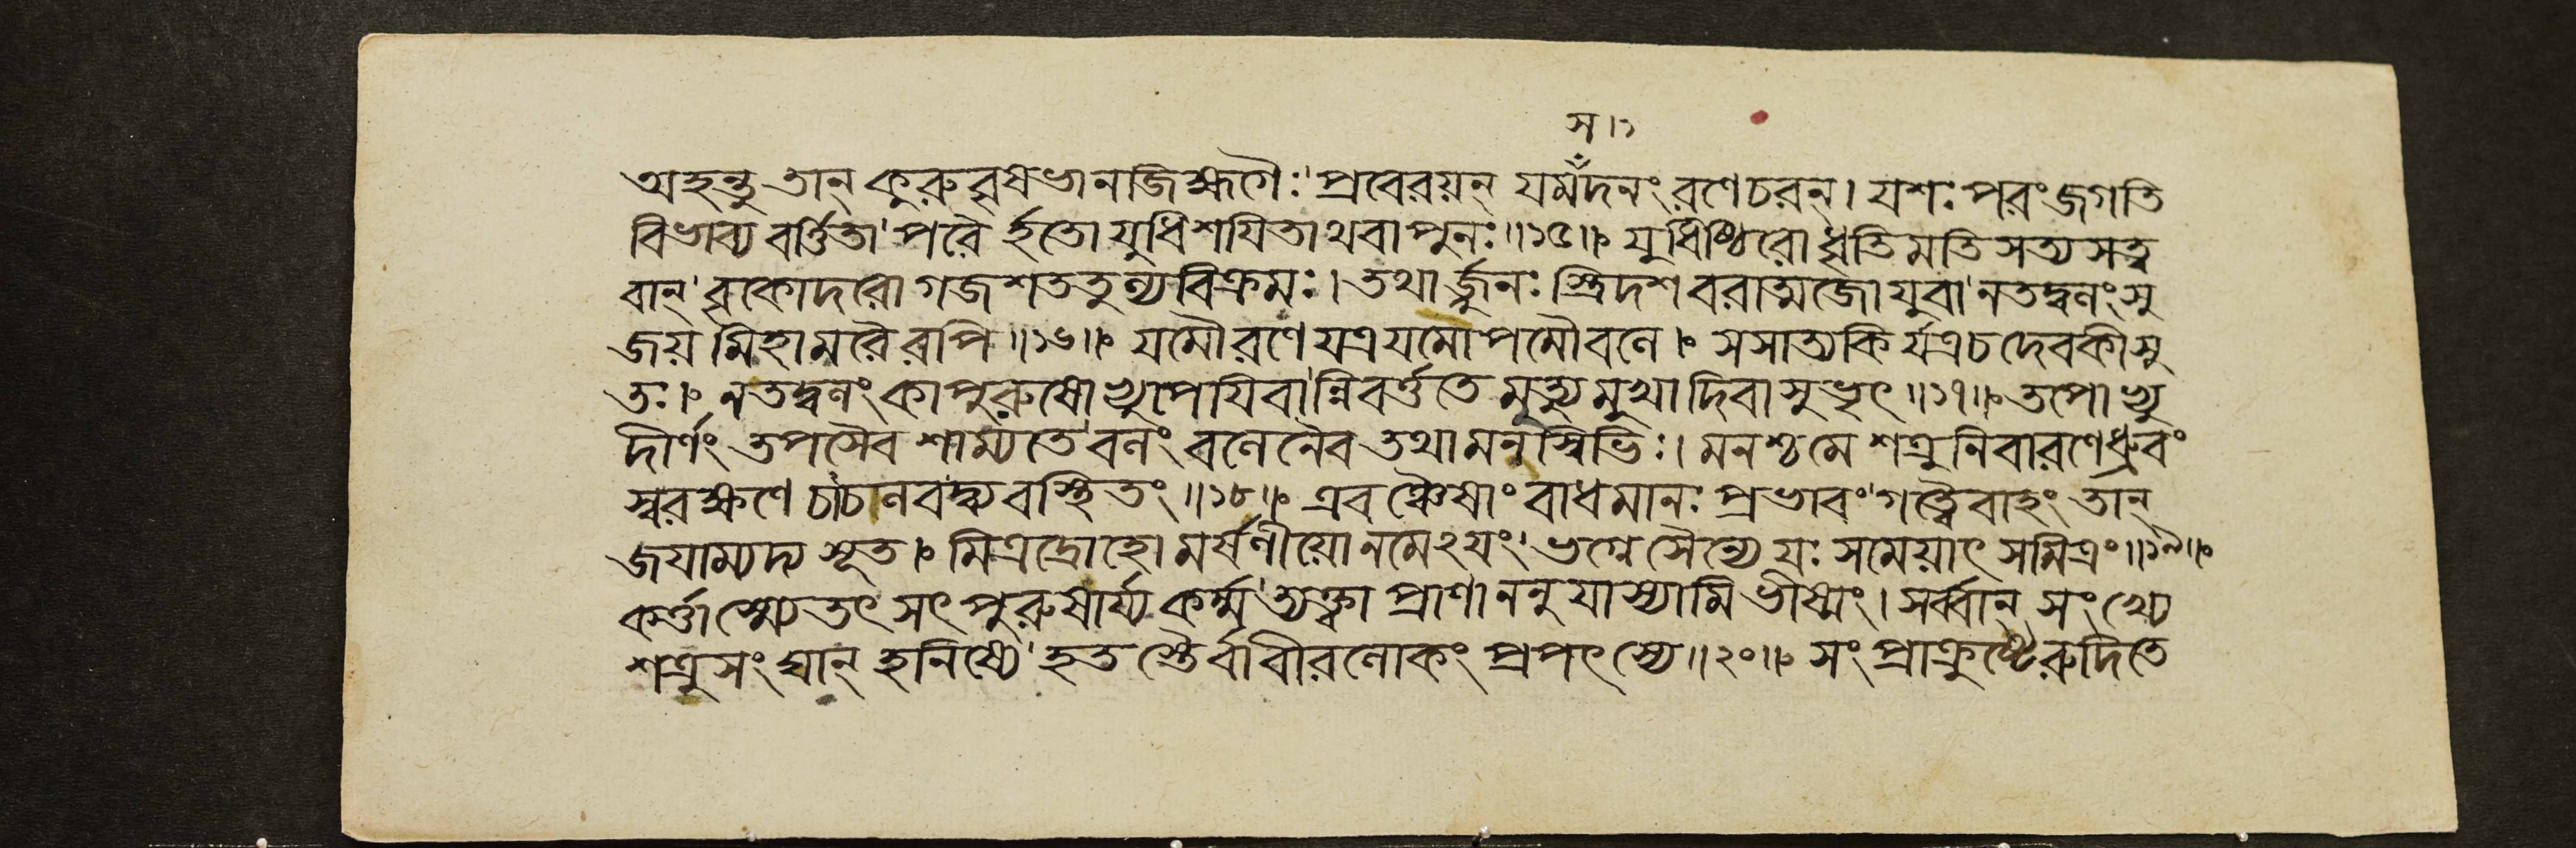 স।১
অহন্তু তান্ কুরুবৃষভানজিহ্মগৈঃ' প্রবেরয়ন্ যমঁদনং রণেচরন্। যশঃ পরং জগতি
বিভাব্য বর্ত্তিতা' পরৈ র্হতো যুধিশযিতাথবা পুনঃ॥১৫॥ যুধিষ্ঠিরো ধৃতিমতি সত্য সত্ত্ব
বান্' বৃকোদরো গজশততুল্যবিক্রমঃ। তথার্জ্জুনঃ স্ত্রিদশবরাত্মজো যুবা' নতদ্বলং সু
জয় মিহামরৈরপি॥১৬॥ যমৌরণে যত্রযমোপমৌবলে। সসাত্যকি র্যত্রচদেবকীসু
তঃ। নতদ্বলং কাপুরুষোভ্যুপেযিবা'ন্নিবর্ত্ততে মৃত্যুমুখাদিবাসুভৃৎ॥১৭॥ তপোভ্যু
দীর্ণং তপসৈব শাম্যতে' বলং বলেনৈব তথা মনস্বিভিঃ। মনশ্চমে শত্রুনিবারণেধ্রুবং
স্বরক্ষণে চাচলবদ্ব্যবস্থিতং॥১৮॥ এবঞ্চৈষাং বাধমানঃ প্রভাবং' গত্বৈবাহং তান্
জয়াম্যদ্য সূত। মিত্রদ্রোহো মর্ষণীয়োনমেঽযং' ভগ্নেসৈন্যে যঃ সমেয়াৎ সমিত্রং॥১৯॥
কর্ত্তাস্ম্যেতৎ সৎপুরুষার্য্য কর্ম্ম' ত্যক্ত্বা প্রাণাননুযাস্যামি ভীষ্মং। সর্ব্বান্ সংখ্যে
শত্রুসংঘান্ হনিষ্যে' হতস্তৈর্ব্বাবীরলোকং প্রপৎস্যে॥২০॥ সংপ্রাক্রুষ্টেরুদিতে